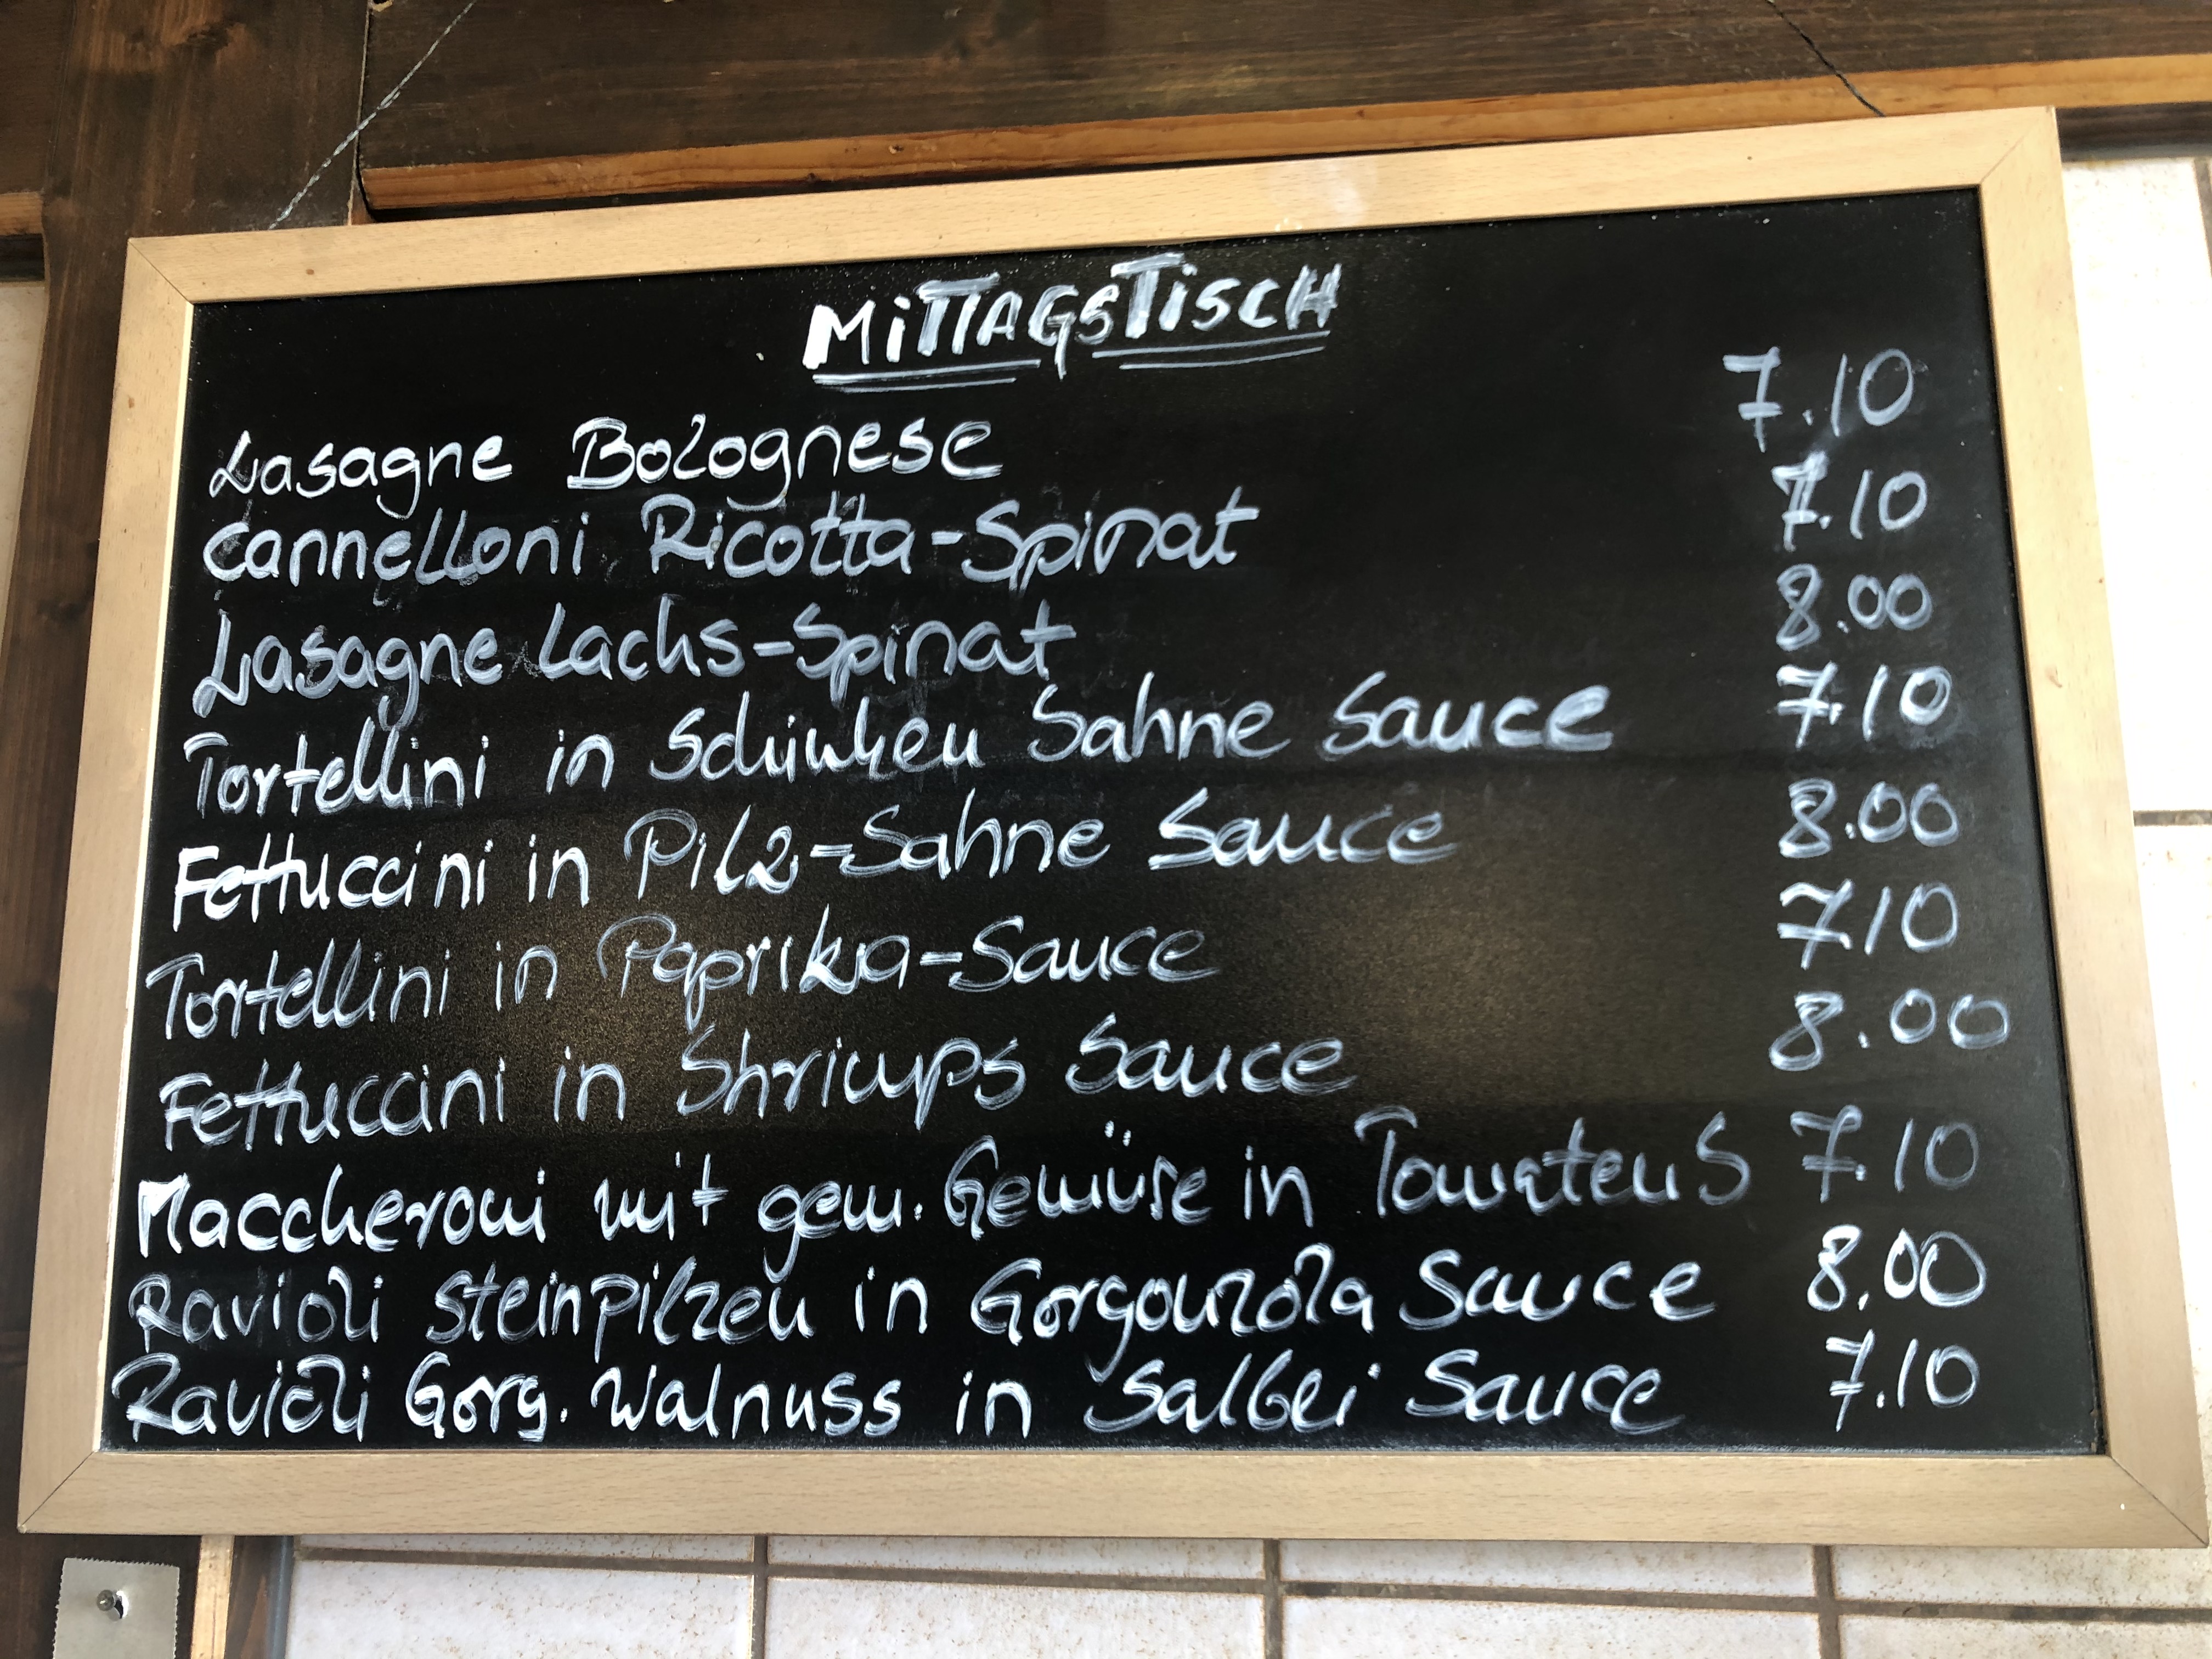 MITTAGSTISCH
Lasagne Bolognese 7.10
Cannelloni Ricotta-Spinat 7.10
Lasagne Lachs-Spinat 8.00
Tortellini in Schinken Sahne Sauce 7.10
Fettuccini in Pilz-Sahne Sauce 8.00
Tortellini in Paprika-Sauce 7.10
Fettuccini in Shrimps Sauce 8.00
Maccheroni mit gem. Gemüse in Tomaten S 7.10
Ravioli Steinpilzen in Gorgonzola Sauce 8.00
Ravioli Gorg. Walnuss in Salbei Sauce 7.10